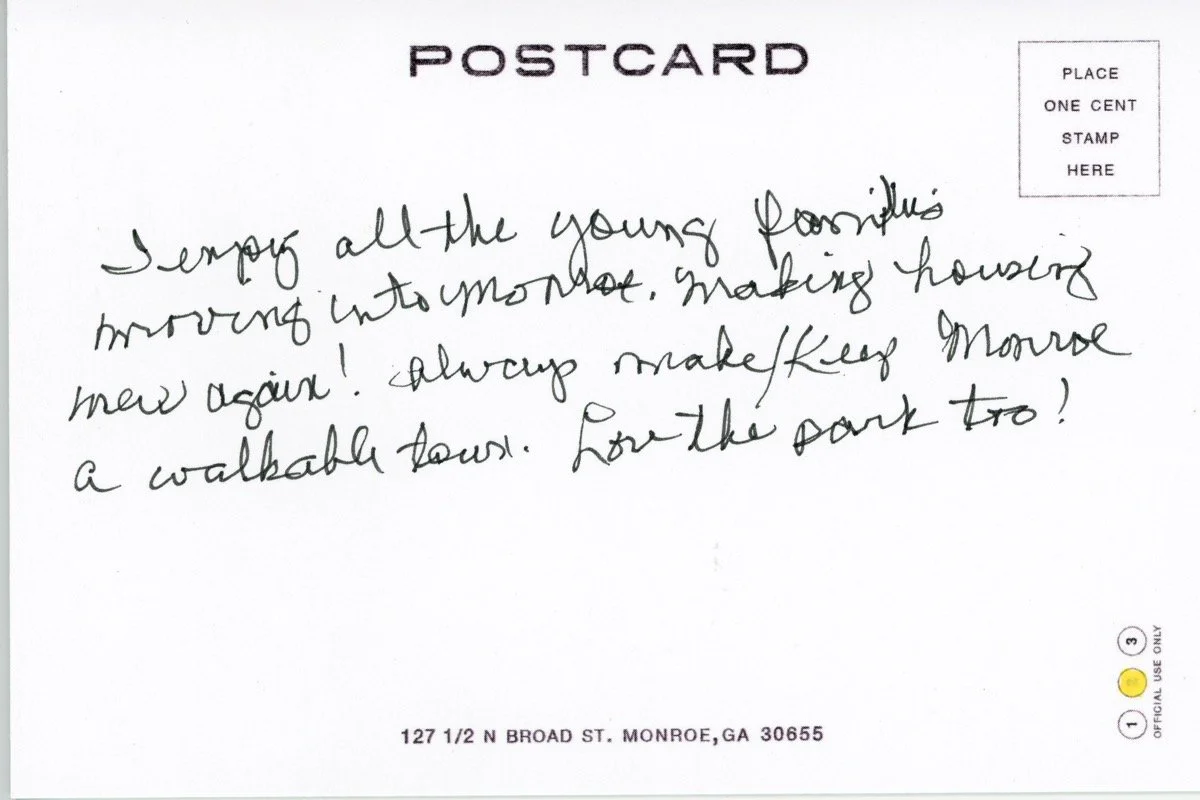 POSTCARD
PLACE
ONE CENT
STAMP
HERE
I enjoy all the young families
moving into Monroe. Making housing
new again! Always make/Keep Monroe
a walkable town. Love the park too!
127 1/2 N BROAD ST. MONROE,GA 30655
1 3
OFFICIAL USE ONLY